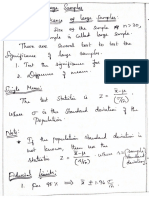 Large Samples
Significance of Large Samples
If the size of the sample n > 30,
the sample is called large sample.
There are several test to test the
significance of large samples.
1. Test the significance for
2. Difference of means
Single Mean:
The test statistic is Z = x̄-μ / (σ/√n)
where σ is the standard deviation of the
Population.
Note:
If the Population standard deviation is
not known, then use the
statistic Z = x̄-μ / (s/√n)
1. For 95% ⇒ x̄ ± 1.96 σ/√n